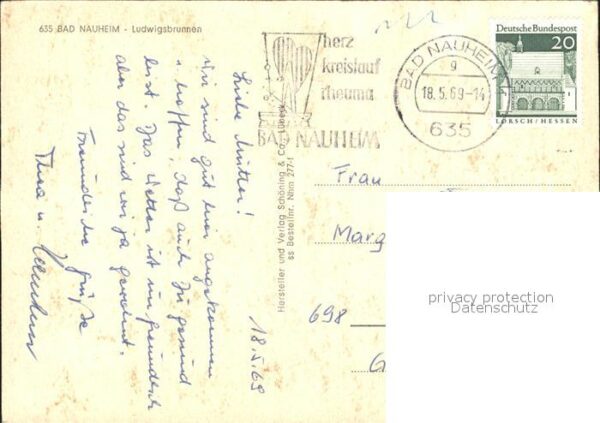 635 BAD NAUHEIM - Ludwigsbrunnen
herz
kreislauf
rheuma
BAD NAUHEIM
BAD NAUHEIM
g
18.5.69-14
635
Deutsche Bundespost
20
LORSCH/HESSEN
18.5.69
Liebe Mutter!
Wir sind gut hier angekommen
u. hoffen, daß auch Du gesund
bist. Das Wetter ist unfreundlich
aber das sind wir ja gewohnt.
Freundliche Grüße
Thea u.
Hersteller und Verlag Schöning & Co., Lübeck
ss Bestellnr. Nhm 277-f
Frau
Marg
698
G
privacy protection
Datenschutz